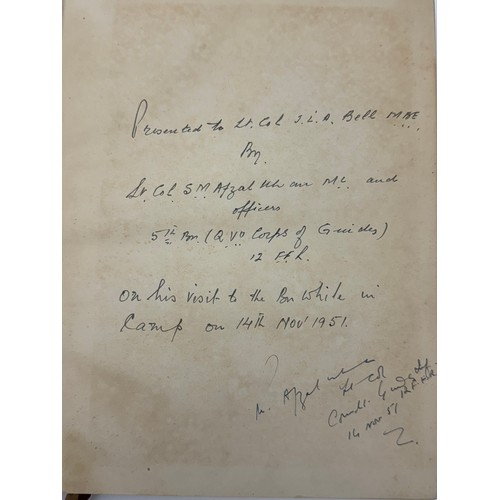 Presented to Lt. Col J.L.A. Bell MBE
By
Lt. Col S.M. Afzal Khan MC and
officers
5th Bn (Q.V.O Corps of Guides)
12 F.F.R.
On his visit to the Bn while in
Camp on 14th Nov 1951.
M. Afzal Khan
Lt Col
Comdt. Guides
14 Nov 51